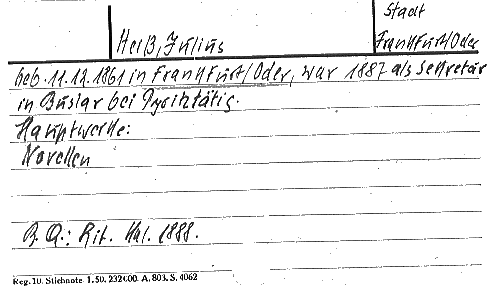 Stadt
Heiß, Julius Frankfurt/Oder
geb. 11.12.1861 in Frankfurt/Oder, war 1887 als Sekretär
in Buslar bei Pyritz tätig.
Hauptwerke:
Novellen
B. Q.: Lit. Kal. 1888.
Reg. 10. Stichnote 1. 50. 232600. A. 803. S. 4062